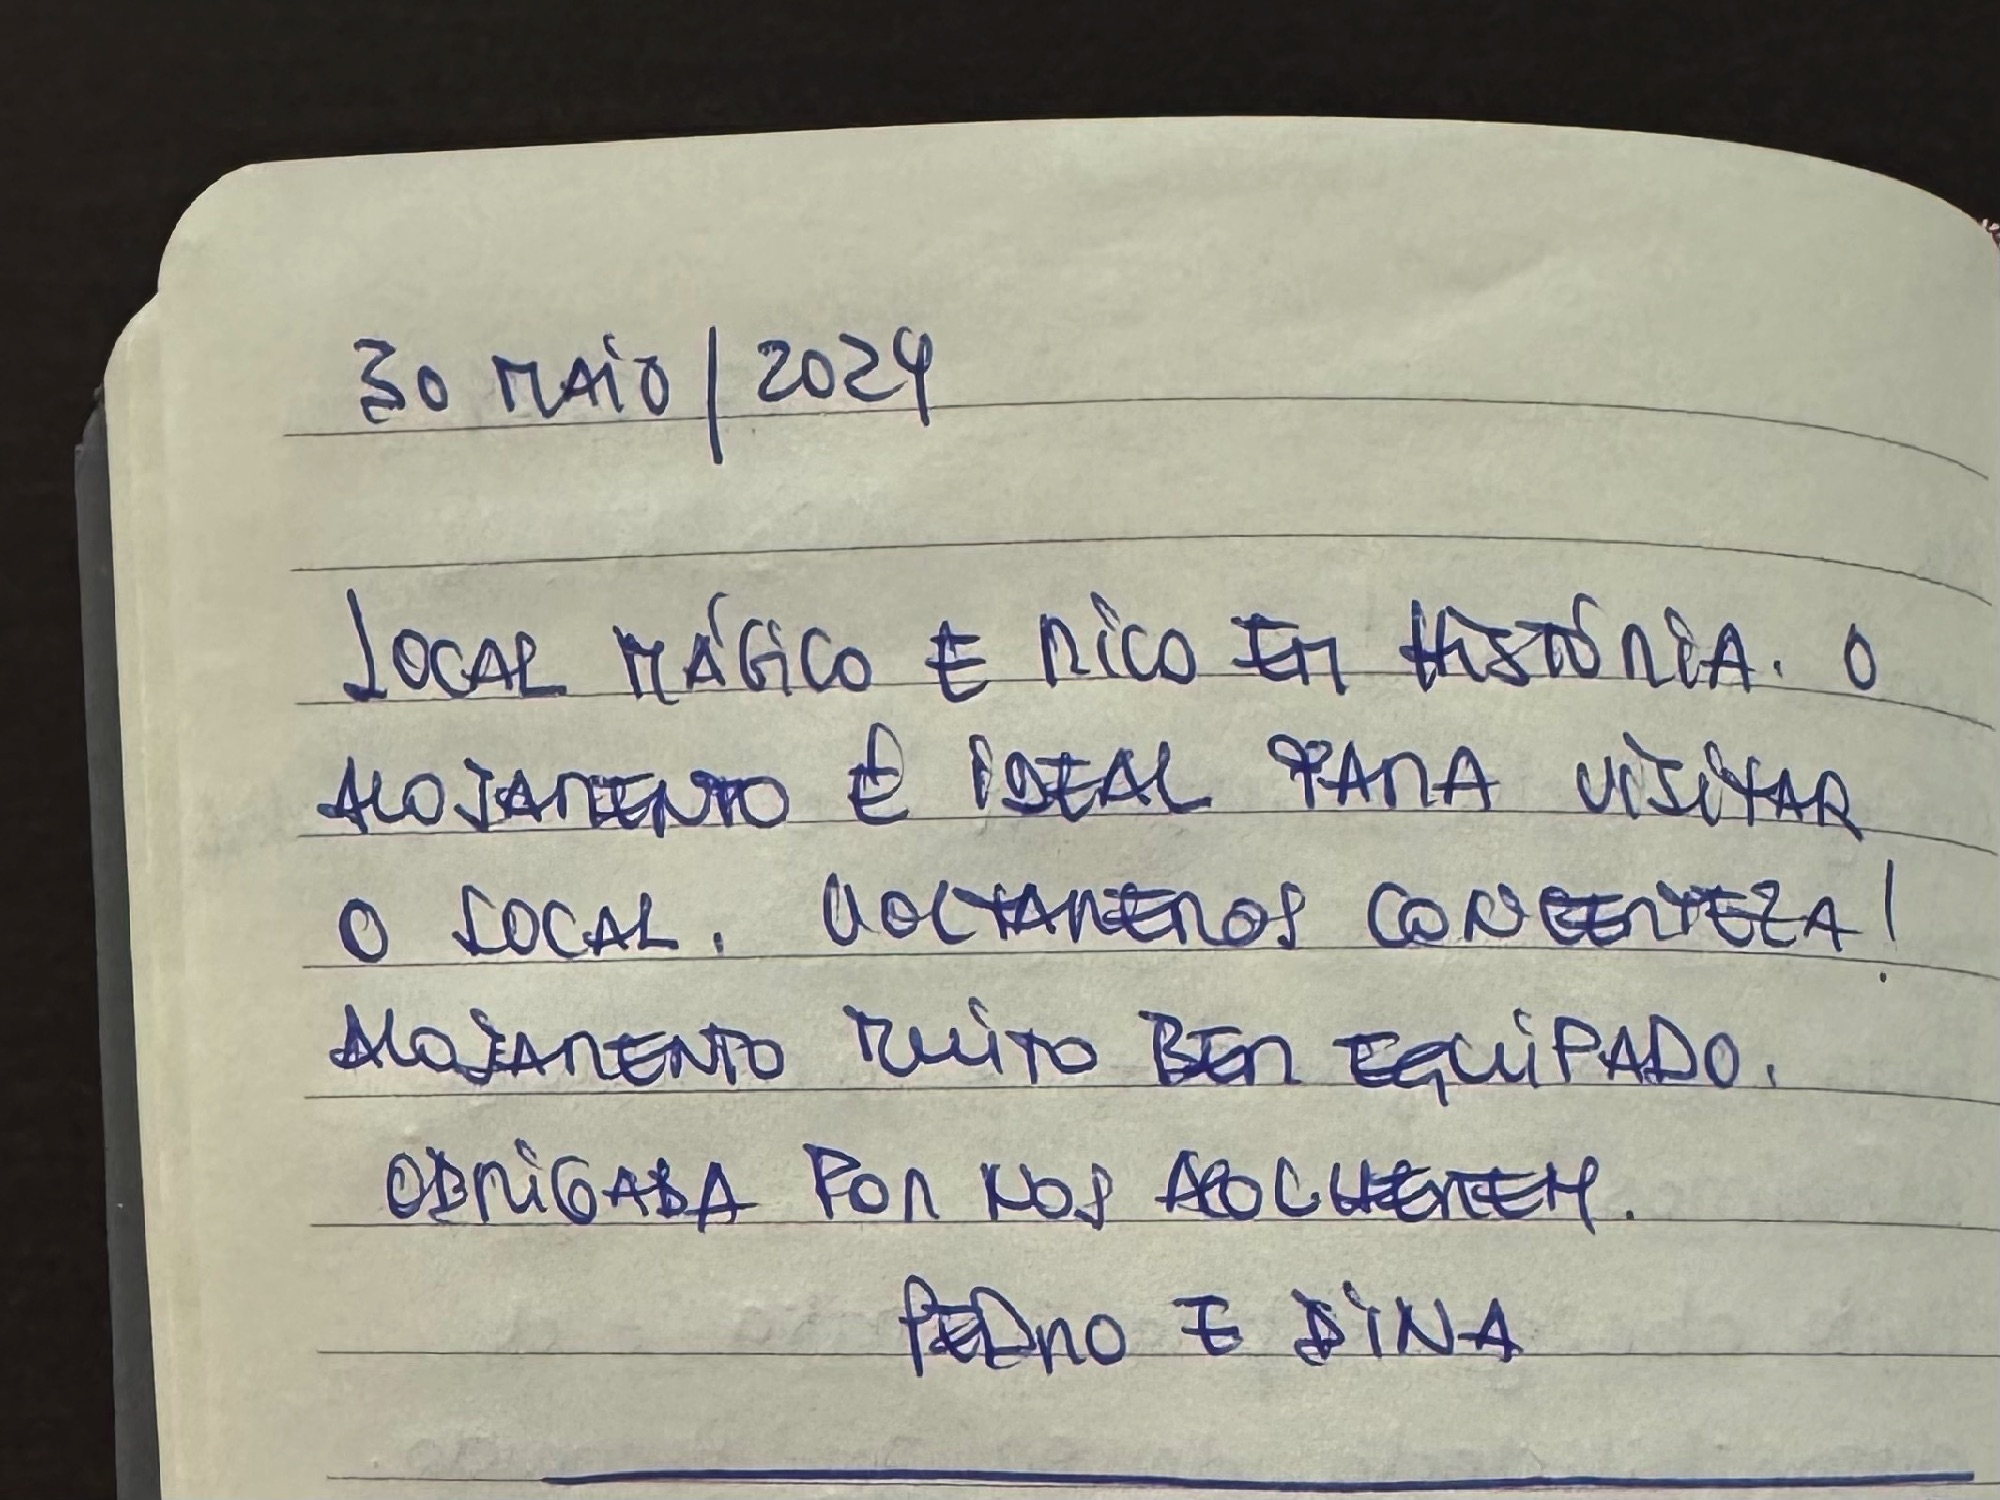 30 MAIO | 2024
LOCAL MÁGICO E RICO EM HISTÓRIA. O
ALOJAMENTO É IDEAL PARA VISITAR
O LOCAL. VOLTAREMOS CONCERTEZA!
ALOJAMENTO MUITO BEM EQUIPADO.
OBRIGADA POR NOS ACOLHEREM.
PEDRO E DINA